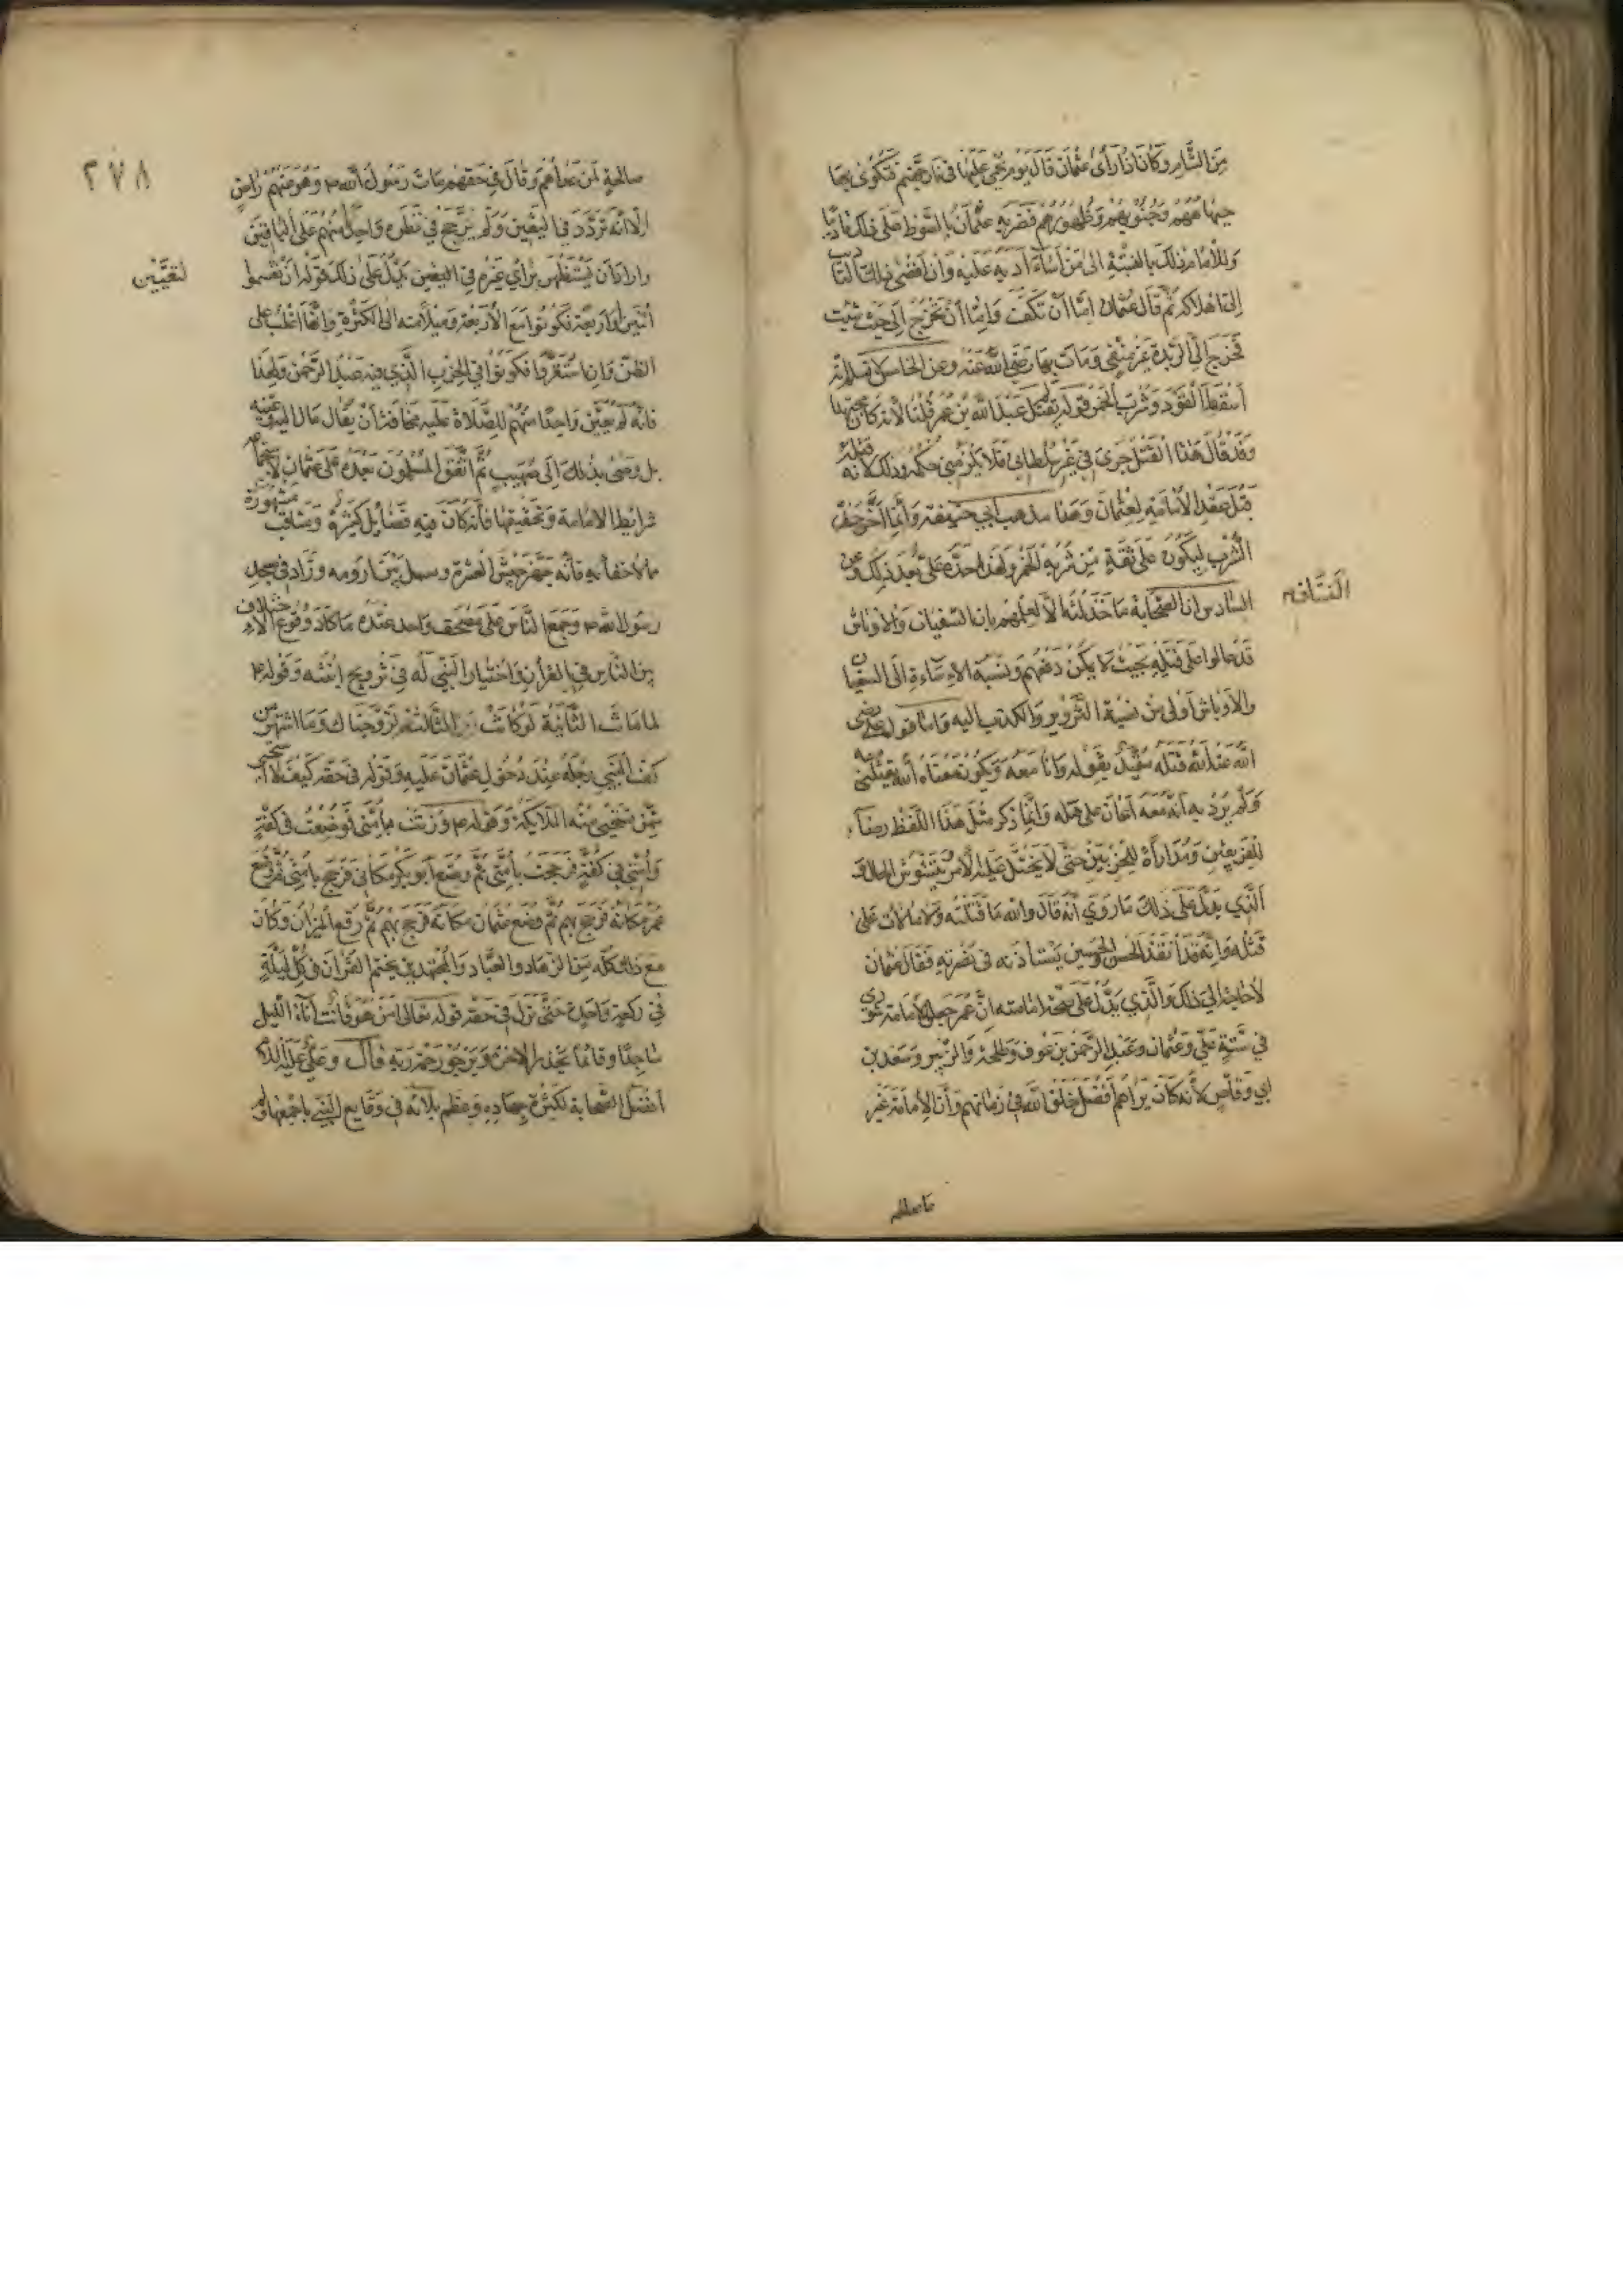 من الشام وكان اذا رأى عثمان قال يوم يحمى عليها في نار جهنم فتكوى بها
جباههم وجنوبهم وظهورهم فضربه عثمان بالسوط على ذلك تأديبا
وللامام ذلك بالنسبة الى من اساء ادبه عليه وان افضى ذلك التأديب
الى اهلاكه ثم قال عثمان اما ان تكف واما ان تخرج الى حيث شئت
فخرج الى الربذة غير منفي ومات بها رضي الله عنه وعن الخامس لا نسلم انه
اسقط القود وشرب الخمر قوله لم يقتل عبد الله بن عمر قلنا لانه كان مجتهدا
وقد قال هذا القتل جرى في غير سلطاني فلا يلزمني حكمه وذلك لانه قتله
قبل عقد الامامة لعثمان وهذا مذهب ابي حنيفة وانما اخر حد
الشرب ليكون على ثقة من شربه الخمر ولهذا حده علي بعد ذلك وعن
السادس ان الصحابة ما خذلته الا لعلمهم بان السفيان والاوباش
الفتيان
قد مالوا على قتله بحيث لا يمكن دفعهم ونسبة الاساءة الى السفيان
والاوباش اولى من نسبة التزوير والكذب اليه واما قول علي رضي
الله عنه الله قتله مقيد بقوله وانا معه ويكون معناه الله يقتلني معه
ولم يرد به انه معه اعان على قتله وانما ذكر مثل هذا اللفظ رضاء
للفريقين ومداراة للحزبين حتى لا يختل عليه الامر بتشوش الحال فـ
الذي يدل على ذلك ما روي انه قال والله ما قتلته ولا مالات على
قتله وانه قد انفذ الحسن والحسين يستأذنه في نصرته فقال عثمان
لا حاجة الى ذلك والذي يدل على صحة امامته ان عمر جعل الامامة شورى
في ستة علي وعثمان وعبد الرحمن بن عوف وطلحة والزبير وسعد بن
ابي وقاص لانه كان يراهم افضل خلق الله في زمانهم وان الامامة غير
صالحة
٢٧٨
صالحة لمن عداهم وقال في حقهم مات رسول الله وهو عنهم راض
الا انه تردد في التعيين ولم يترجح في نظره واحد منهم على الباقين
واراد ان يستظهر براي غيره في التعيين يدل على ذلك قوله ان تقسموا
لتعيين
اثنين او اربعة فكونوا مع الاربعة وميلا منه الى الكثرة وانها اغلب على
الظن وان استقروا فكونوا في الحزب الذي فيه عبد الرحمن ولهذا
فانه لم يعين واحدا منهم للصلاة عليه مخافة أن يقال مال الى تعيينه
بل وصى بذلك الى صهيب ثم اتفق المسلمون بعده على عثمان لاستجماعه
شرايط الامامة وتحقيقها فانه كان فيه فضايل كثيرة ومناقب مشهورة
ما لا خفاء به فانه جهز جيش العسرة وسبل بئر رومة وزاد في مسجد
رسول الله وجمع الناس على مصحف واحد عنده ما كاد وقوع الاختلاف
بين الناس في القرآن واختيار النبي له في تزويج ابنته وقوله
لما ماتت الثانية لو كانت الثالثة لزوجناك وما اشتهر من
كف النبي رجله عند دخول عثمان عليه وقوله في حقه كيف لا استحيي
ممن تستحيي منه الملايكة وقوله وزنت بامتي فوضعت في كفة
وامتي في كفة فرجحت بامتي ثم وضع ابو بكر مكاني فرجح بامتي ثم وضع
عمر مكانه فرجح بهم ثم وضع عثمان مكانه فرجح بهم ثم رفع الميزان وكان
مع ذلك كله من الزهاد والعباد والمجتهدين يختم القرآن في كل ليلة
في ركعة واحدة حتى نزل في حقه قوله تعالى امن هو قانت آناء الليل
ساجدا وقائما يحذر الاخرة ويرجو رحمة ربه قال وعلي عليه السلام
افضل الصحابة لكثرة جهاده وعظم بلائه في وقايع النبي باجمعها ولم